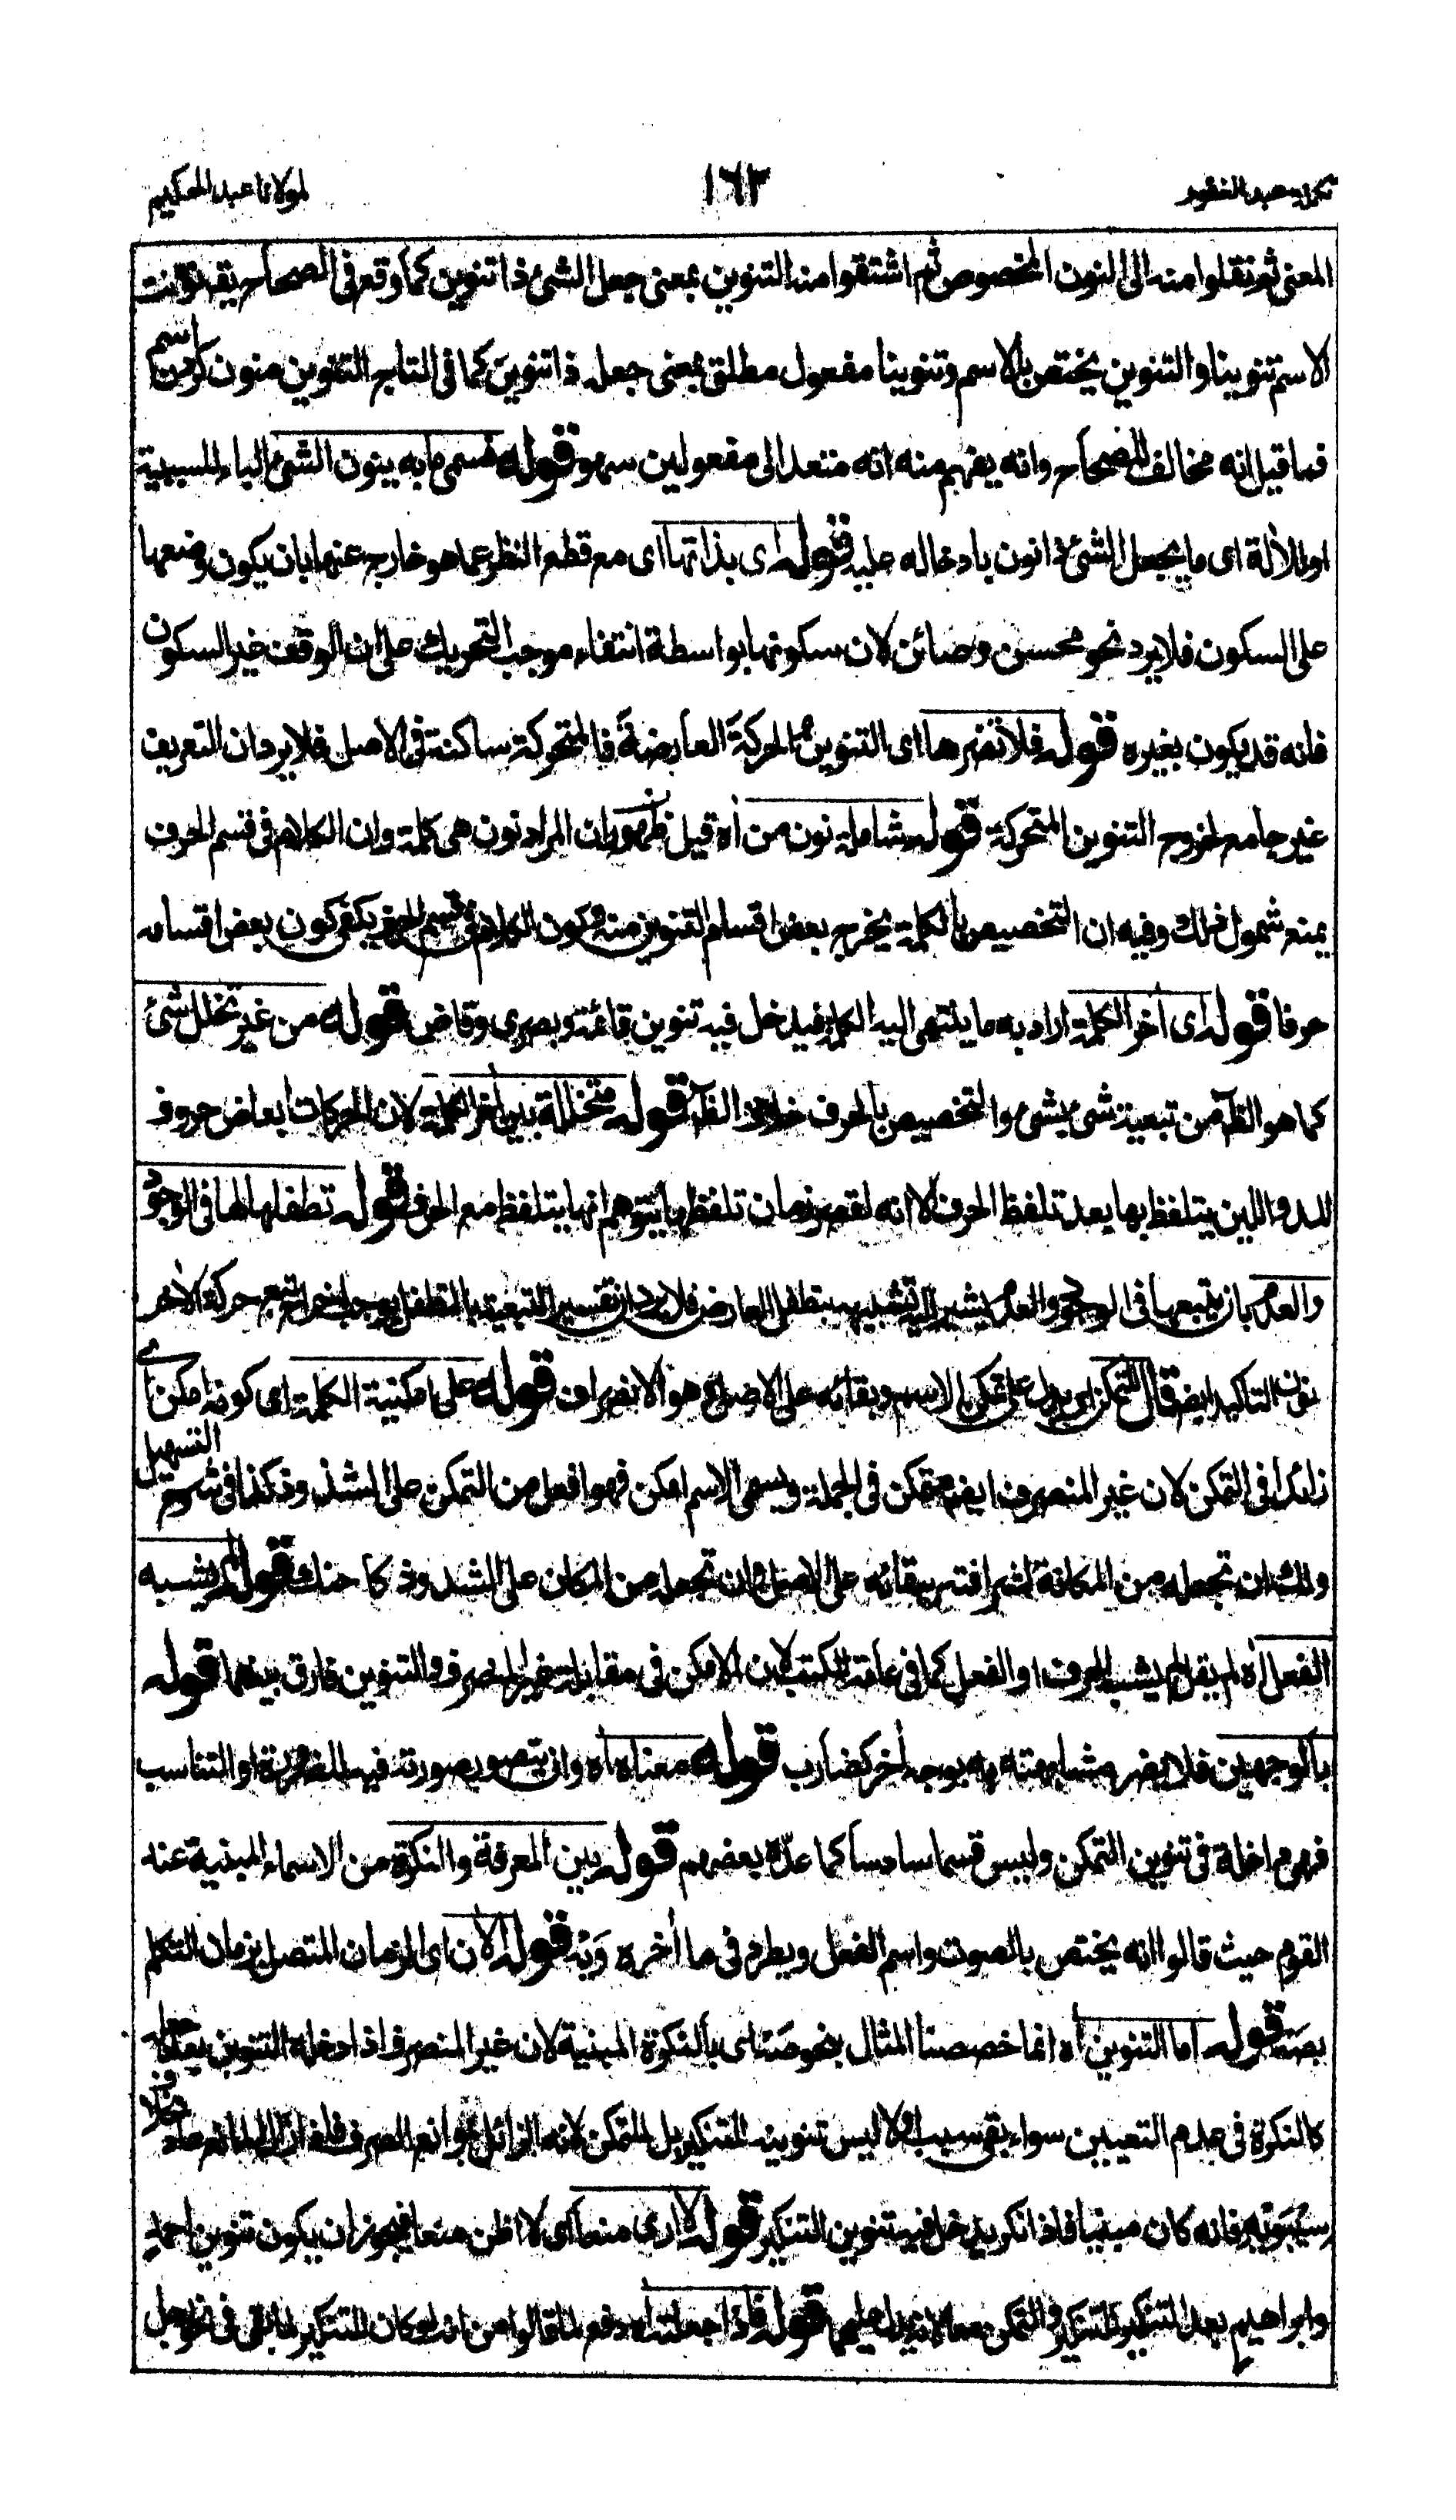 تكملہ عبد الغفور ١٦٣ لمولانا عبد الحكيم
المعنى ثم نقلوا منه الى النون المخصوص ثم اشتقوا منه التنوين بمعنى جعل الشئ ذا تنوين كما وقع فى الصحاح يقه نونت
الاسم تنوينا والتنوين يختص بالاسم وتنوينا مفعول مطلق بمعنى جعله ذا تنوين كما فى التاج التنوين منون كردن اسم
فما قيل انه مخالف للصحاح وانه يفهم منه انه متعد الى مفعولين سهو قوله فسمى ما به ينون الشئ الباء للسببية
او للألة اى ما يجعل الشئ ذا نون بادخاله عليه قوله اى بذاتها اى مع قطع النظر عما هو خارج عنها بان يكون وضعها
على السكون فلا يرد نحو محسن وضائن لان سكونها بواسطة انتفاء موجب التحريك على ان الوقف غير السكون
فانه قد يكون بغيره قوله فلا تضرها اى التنوين الحركة العارضة فالمتحركة ساكنة فى الاصل فلا يرد ان التعريف
غير جامع لخروج التنوين المتحركة قوله شاملة نون من أه قيل ظهور ان المراد نون هى كلمة وان الكلام فى قسم الحرف
يمنع شمول ذلك وفيه ان التخصيص بالكلمة يخرج بعض اقسام التنوين منه وكون الكلام فى قسم الحرف يكفى كون بعض اقسامه
حرفا قوله اى أخر الكلمة اراد به ما ينتهى اليه الكلمة فيدخل فيه تنوين قائمة وبصرى وقاض قوله من غير تخلل شئ
كما هو الظآ من تبعية شئ بشئ والتخصيص بالحرف خلاف الظآ قوله متخللة بين أخر الكلمة لان الحركات ابعاض حروف
المد واللين يتلفظ بها بعد تلفظ الحرف الا انه لقصر زمان تلفظها يتوهم انها يتلفظ مع الحرف قوله تطفلها لها فى الوجود
والعدم بان يتبعها فى الوجود والعدم يشير اليه تشبيهه بتطفل العارض فلا يرد ان تفسير التبعية بالتطفل يوجب اخراج تتبع حركة الأخر
نون التأكيد ايضه قال للتمكن اى يدل على تمكن الاسم وبقائه على الاصل هو الانصراف قوله على امكنية الكلمة اى كونه امكن اى
زائدا فى التمكن لان غير المنصرف ايضه متمكن فى الجملة ويسمى الاسم امكن فهو افعل من التمكن على الشذوذ كذا فى شرح التسهيل
ولك ان تجعله من المكانة لشرافته ببقائه على الاصل وان تجعله من المكان على الشذوذ كا حنك قوله لم يشبه
الفعل أه لم يقل لم يشبه الحرف او الفعل كما فى عامة الكتب لان الامكن فى مقابلة غير المنصرف والتنوين فارق بينهما قوله
بالوجهين فلا يضر مشابهته به بوجه أخر كضارب قوله معناه أه وان يتصور بصورته فيه للضرورة او التناسب
فهى داخلة فى تنوين التمكن وليس قسما سادسا كما عدّه بعضهم قوله بين المعرفة والنكرة من الاسماء المبنية عند
القوم حيث قالوا انه يختص بالصوت واسم الفعل ويطرد فى ما أخره وَيْهِ قوله الأن اى الزمان المتصل بزمان التكلم
بصَه قوله اما التنوين أه انما خصصنا المثال بنحو صَه اى بالنكرة المبنية لان غير المنصرف اذا دخله التنوين بعد
كالنكرة فى عدم التعيين سواء بقى سبب اولا ليس تنوينه للتنكير بل للتمكن لانه الزائل بموانع الصرف فاذا زال المانع عاد بخلاف
سيبويه فانه كان مبنيا فاذا نكر يدخل فيه تنوين التنكير قوله لا ارى منعا اى لا اظن منعا فيجوز ان يكون تنوين احمد
وابراهيم بعد التنكير للتنكير والتمكن معا لانه يدل عليهما قوله فاذا جعلته أه دفع لما قالوا من انه لو كان للتنكير لما بقى فى نحو رجل